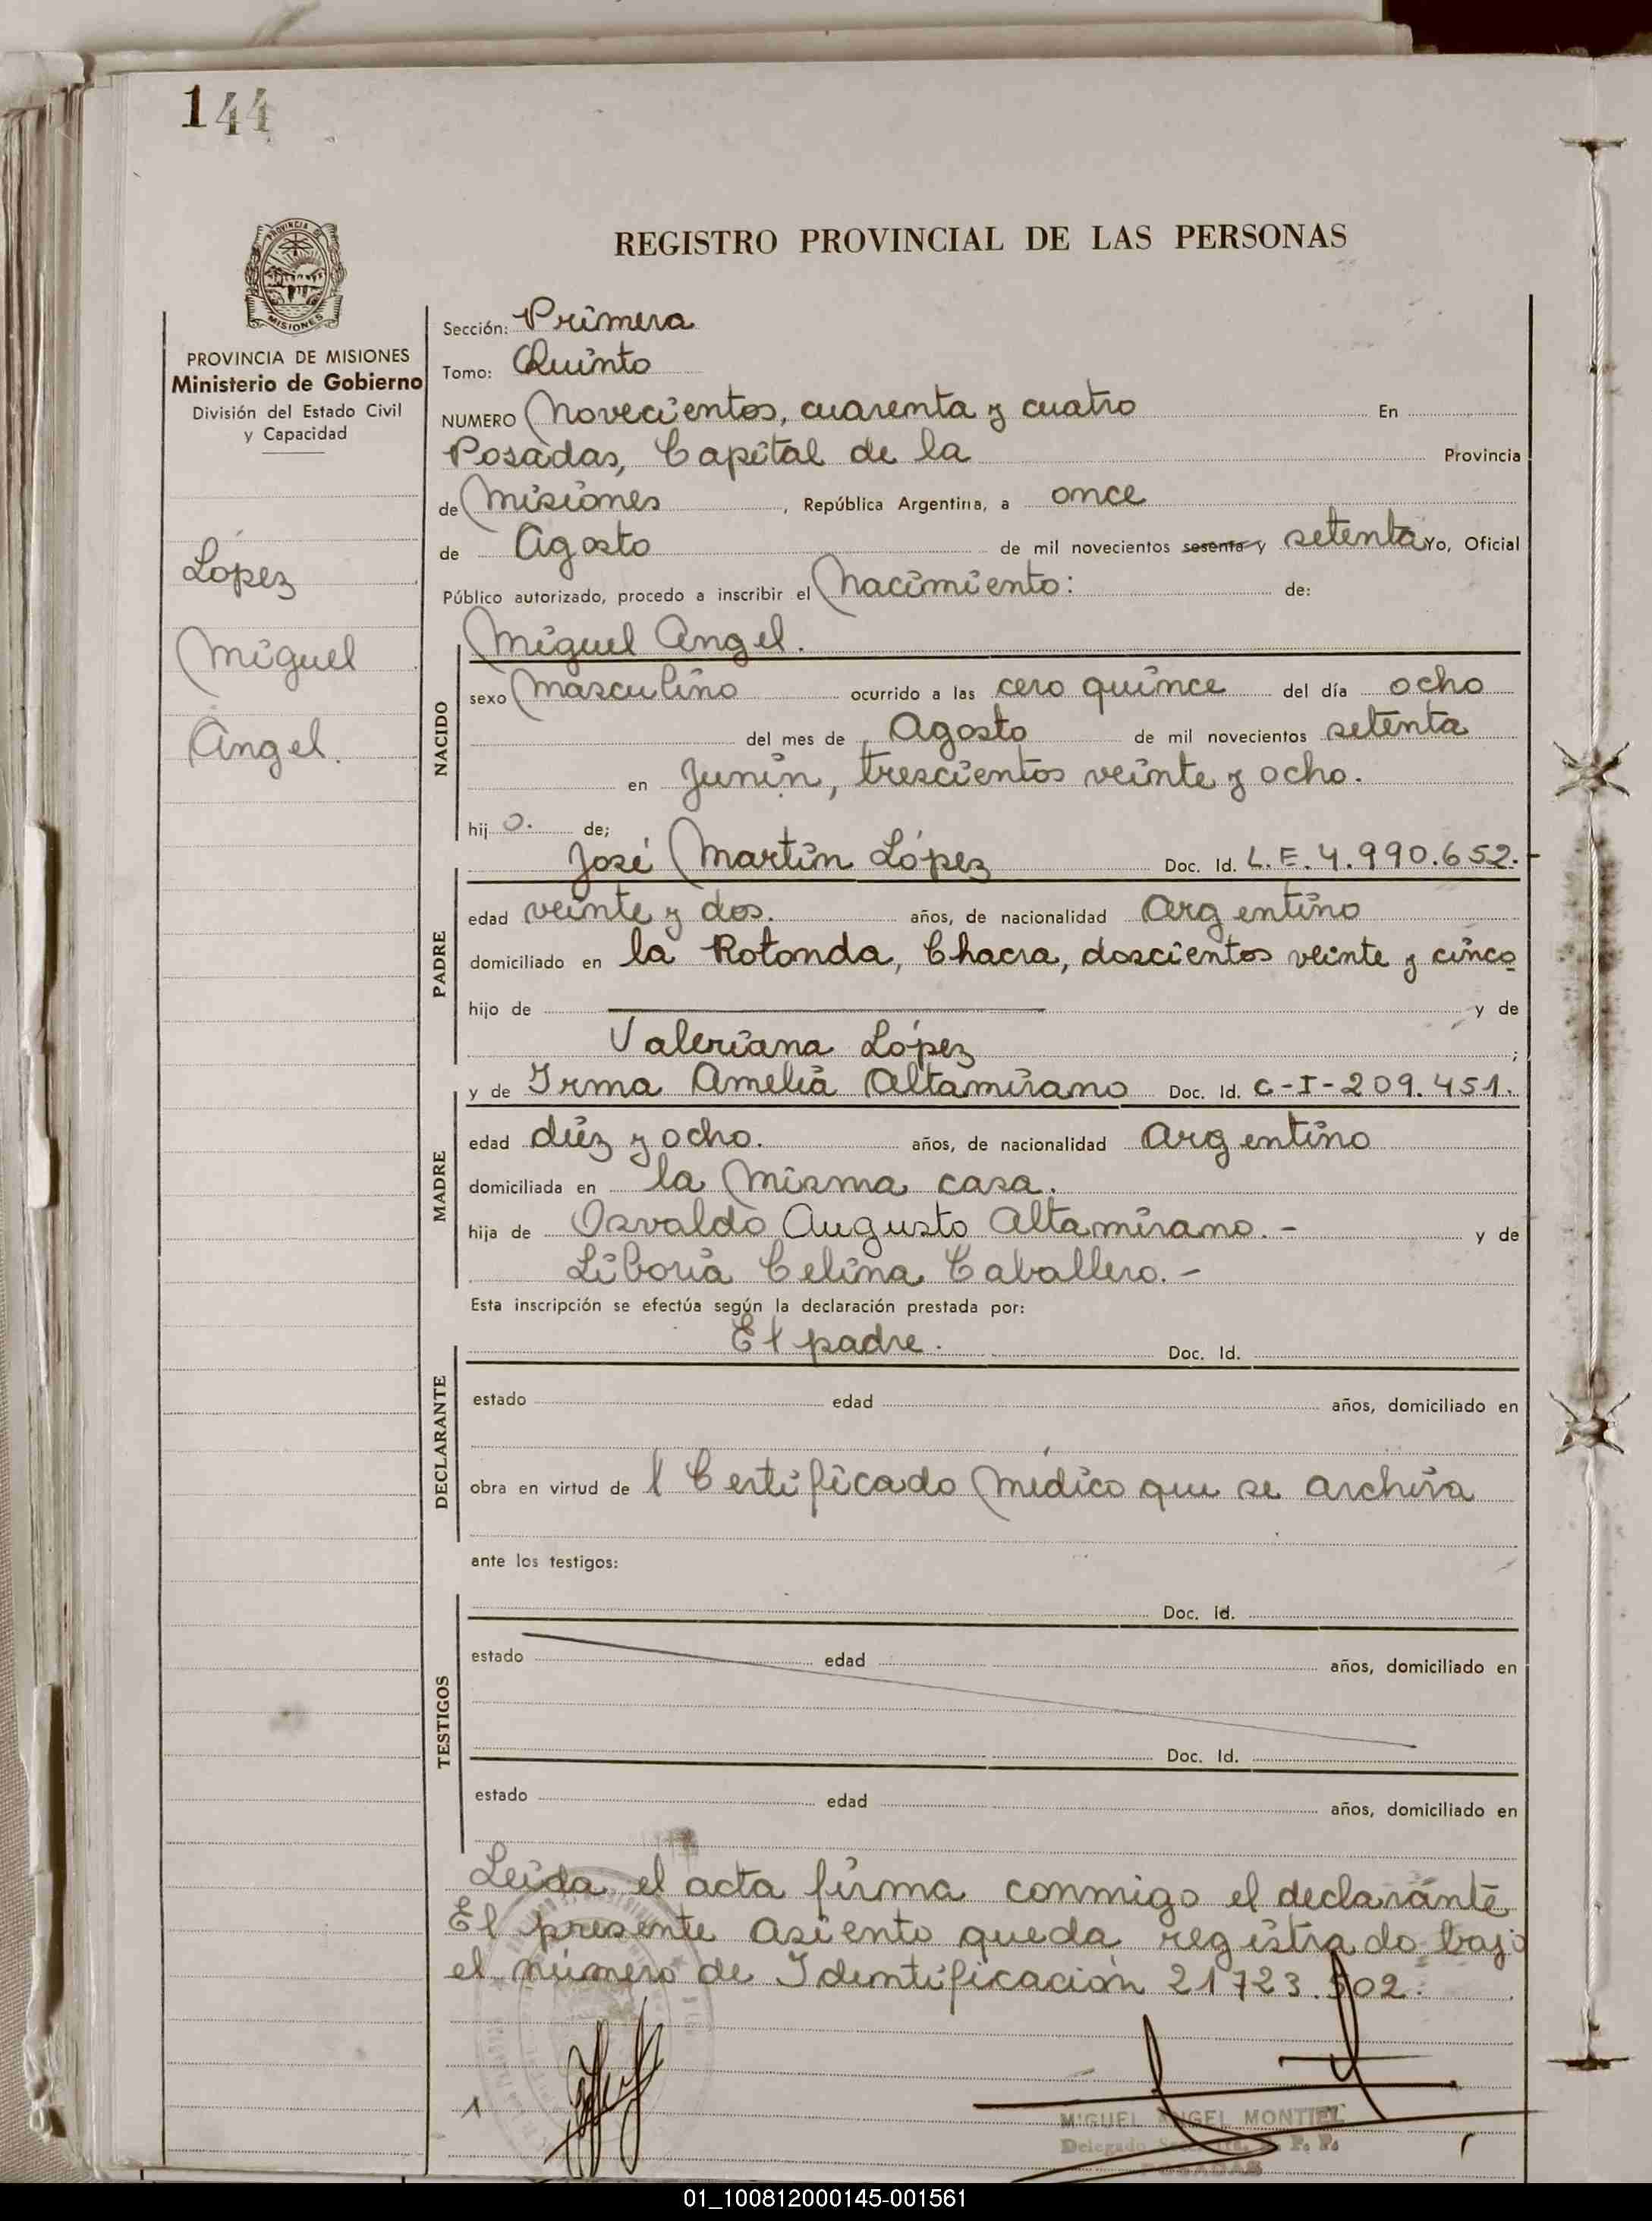 144
REGISTRO PROVINCIAL DE LAS PERSONAS
PROVINCIA DE
MISIONES
PROVINCIA DE MISIONES
Ministerio de Gobierno
División del Estado Civil
y Capacidad
López
Miguel
Angel.
Sección: Primera
Tomo: Quinto
NUMERO Novecientos, cuarenta y cuatro En
Posadas, Capital de la Provincia
de Misiones, República Argentina, a once
de Agosto de mil novecientos sesenta y setenta Yo, Oficial
Público autorizado, procedo a inscribir el Nacimiento: de:
Miguel Angel.
NACIDO
sexo Masculino ocurrido a las cero quince del día ocho
del mes de Agosto de mil novecientos setenta
en Junín, trescientos veinte y ocho.
hij o. de;
José Martín López Doc. Id. L.E. 4.990.652.-
PADRE
edad veinte y dos. años, de nacionalidad Argentino
domiciliado en la Rotonda, Chacra, doscientos veinte y cinco
hijo de y de
Valeriana López ;
y de Irma Amelia Altamirano Doc. Id. C-I-209.451.
MADRE
edad diéz y ocho. años, de nacionalidad Argentino
domiciliada en la misma casa.
hija de Osvaldo Augusto Altamirano.- y de
Liboria Celina Caballero.-
Esta inscripción se efectúa según la declaración prestada por:
El padre. Doc. Id.
DECLARANTE
estado edad años, domiciliado en
obra en virtud de l Certificado Médico que se archiva
ante los testigos:
Doc. Id.
TESTIGOS
estado edad años, domiciliado en
Doc. Id.
estado edad años, domiciliado en
Leida el acta firma conmigo el declarante
El presente asiento queda registrado bajo
el número de Identificación 21723.502.
MIGUEL ANGEL MONTIEL
Delegado
POSADAS
01_100812000145-001561